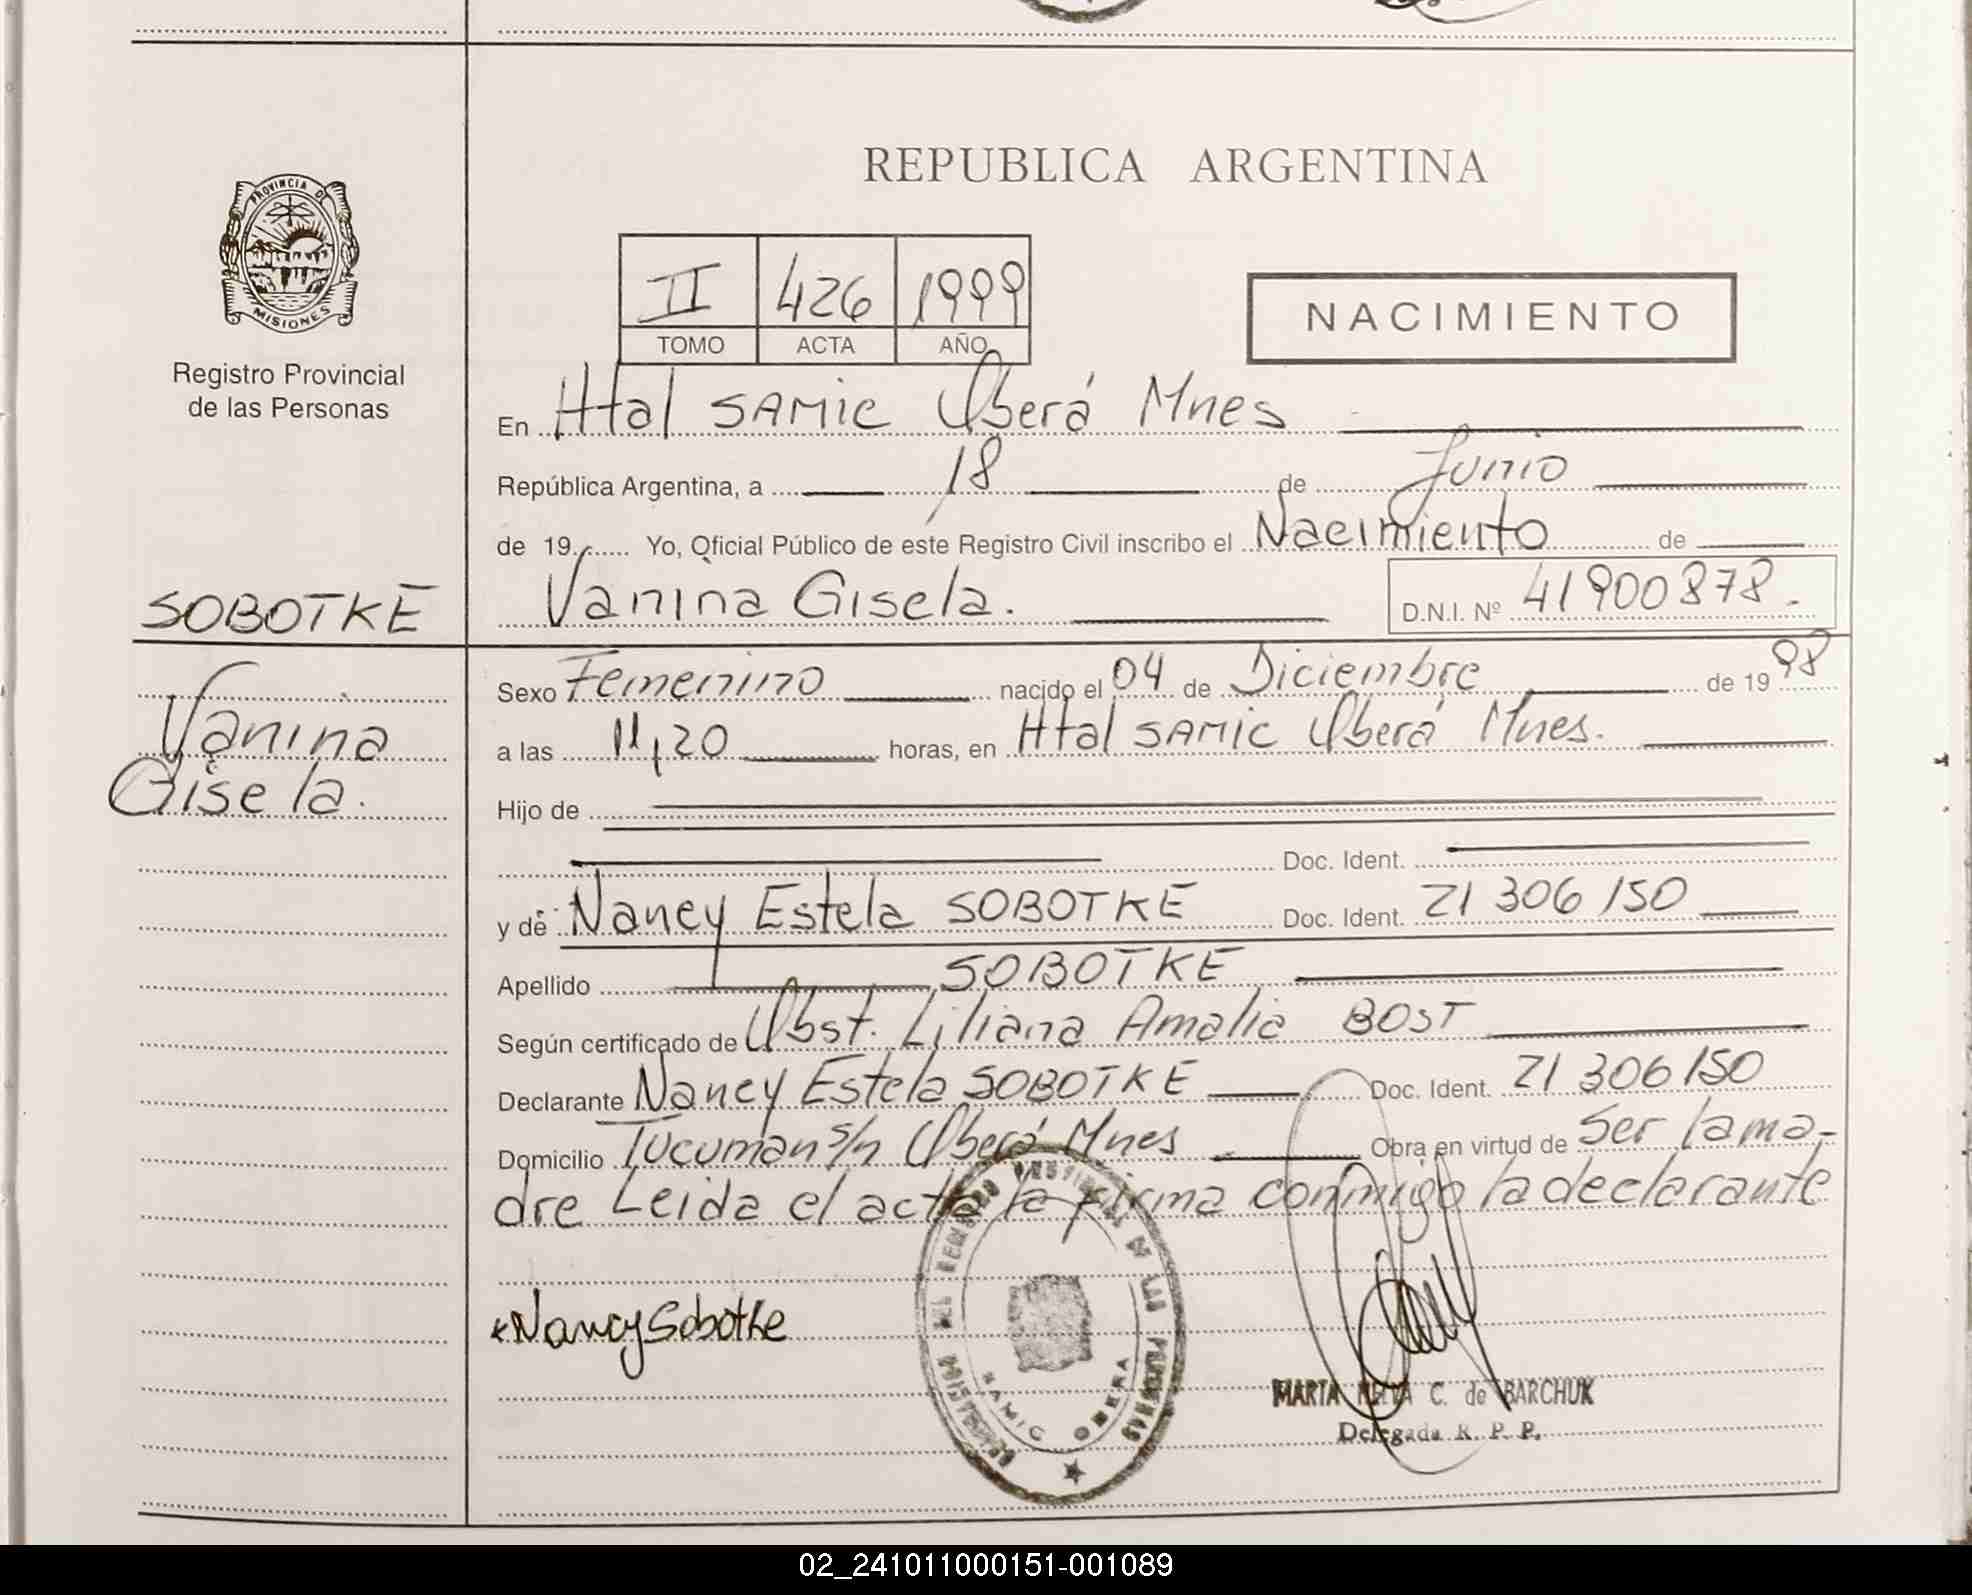 REPUBLICA ARGENTINA
PROVINCIA DE
MISIONES
Registro Provincial
de las Personas
II 426 1999
TOMO ACTA AÑO
NACIMIENTO
En Htal SAMIC Oberá Mnes
República Argentina, a 18 de Junio
de 19 Yo, Oficial Público de este Registro Civil inscribo el Nacimiento de
Vanina Gisela. D.N.I. Nº 41900878.
SOBOTKE
Vanina
Gisela.
Sexo Femenino nacido el 04 de Diciembre de 1998
a las 11,20 horas, en Htal SAMIC Oberá Mnes.
Hijo de
Doc. Ident.
y de Nancy Estela SOBOTKE Doc. Ident. 21 306 150
Apellido SOBOTKE
Según certificado de Obst. Liliana Amalia BOST
Declarante Nancy Estela SOBOTKE Doc. Ident. 21 306 150
Domicilio Tucuman s/n Oberá Mnes Obra en virtud de Ser la ma-
dre Leida el acta la firma conmigo la declarante
Nancy Sobotke
DEL REGISTRO PROVINCIAL DE LAS PERSONAS
SAMIC OBERA
MARTA C. de BARCHUK
Delegada R. P. P.
02_241011000151-001089